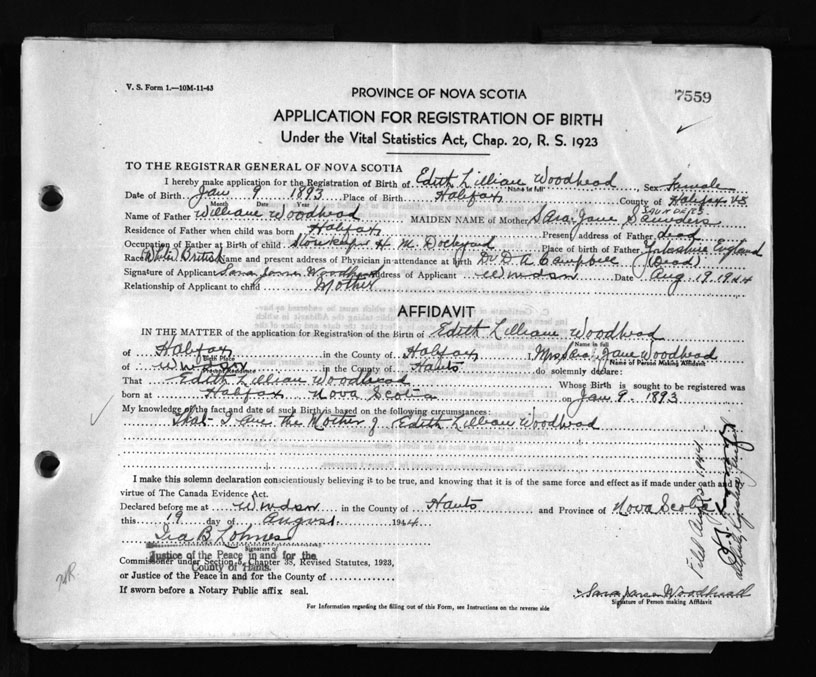 V. S. Form 1.—10M-11-43
PROVINCE OF NOVA SCOTIA
7559
APPLICATION FOR REGISTRATION OF BIRTH
Under the Vital Statistics Act, Chap. 20, R. S. 1923
TO THE REGISTRAR GENERAL OF NOVA SCOTIA
I hereby make application for the Registration of Birth of Edith Lillian Woodhead, Sex Female
Name in full
Date of Birth Jan 9 1893 Place of Birth Halifax County of Halifax
Month Day Year
SAUNDERS
Name of Father William Woodhead MAIDEN NAME of Mother Sara Jane Saunders
Residence of Father when child was born Halifax Present address of Father dead
Occupation of Father at Birth of child Storekeeper H. M. Dockyard Place of birth of Father Yorkshire England
Race White British Name and present address of Physician in attendance at birth Dr D A Campbell (Dead)
Signature of Applicant Sara Woodhead Address of Applicant Windsor Date Aug. 19 1944
Relationship of Applicant to child Mother
AFFIDAVIT
IN THE MATTER of the application for Registration of the Birth of Edith Lillian Woodhead
Name in full
of Halifax in the County of Halifax I, Mrs Sara Jane Woodhead
Birth Place Name of Person Making Affidavit
of Windsor in the County of Hants do solemnly declare:
Present Residence
That Edith Lillian Woodhead Whose Birth is sought to be registered was
born at Halifax Nova Scotia on Jan 9. 1893
My knowledge of the fact and date of such Birth is based on the following circumstances:
That I am the Mother of Edith Lillian Woodhead
I make this solemn declaration conscientiously believing it to be true, and knowing that it is of the same force and effect as if made under oath and by
virtue of The Canada Evidence Act.
Declared before me at Windsor in the County of Hants and Province of Nova Scotia
this 19 day of August 1944
Ira B Lohnes
Signature of
Justice of the Peace in and for the
County of Hants.
Commissioner under Section 8, Chapter 38, Revised Statutes, 1923,
or Justice of the Peace in and for the County of
If sworn before a Notary Public affix seal.
Sara Woodhead
Signature of Person making Affidavit
For Information regarding the filling out of this Form, see Instructions on the reverse side
Filed Aug 1944